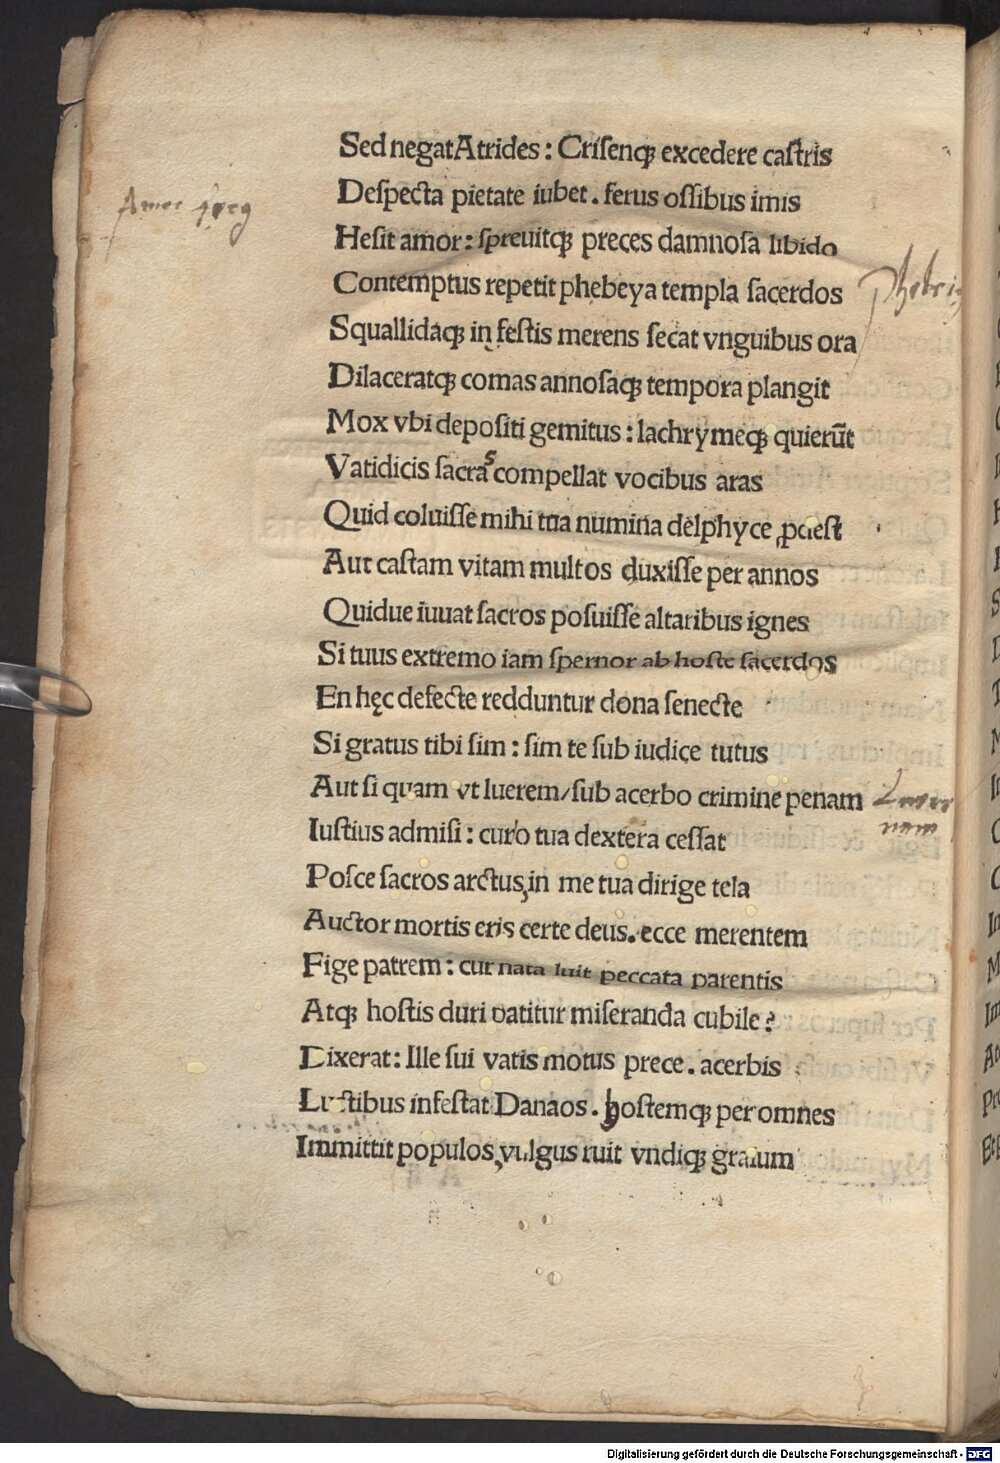 Sed negat Atrides : Crisenqꝫ excedere castris
Despecta pietate iubet . ferus ossibus imis
Hesit amor : spreuitqꝫ preces damnosa libido
Contemptus repetit phebeya templa sacerdos
Squallidaqꝫ in festis merens secat vnguibus ora
Dilaceratqꝫ comas annosaqꝫ tempora plangit
Mox vbi depositi gemitus : lachrymeqꝫ quierūt
Vatidicis sacras compellat vocibus aras
Quid coluisse mihi tua numina delphyce ꝓdest
Aut castam vitam multos duxisse per annos
Quidue iuuat sacros posuisse altaribus ignes
Si tuus extremo iam spernor ab hoste sacerdos
En hęc defecte redduntur dona senecte
Si gratus tibi sim : sim te sub iudice tutus
Aut si quam vt luerem/sub acerbo crimine penam
Iustius admisi : cur o tua dextera cessat
Posce sacros arctus, in me tua dirige tela
Auctor mortis eris certe deus. ecce merentem
Fige patrem : cur nata luit peccata parentis
Atqꝫ hostis duri patitur miseranda cubile ?
Dixerat : Ille sui vatis motus prece . acerbis
Luctibus infestat Danaos . hostemqꝫ per omnes
Immittit populos, vulgus ruit vndiqꝫ graium
Digitalisierung gefördert durch die Deutsche Forschungsgemeinschaft - DFG